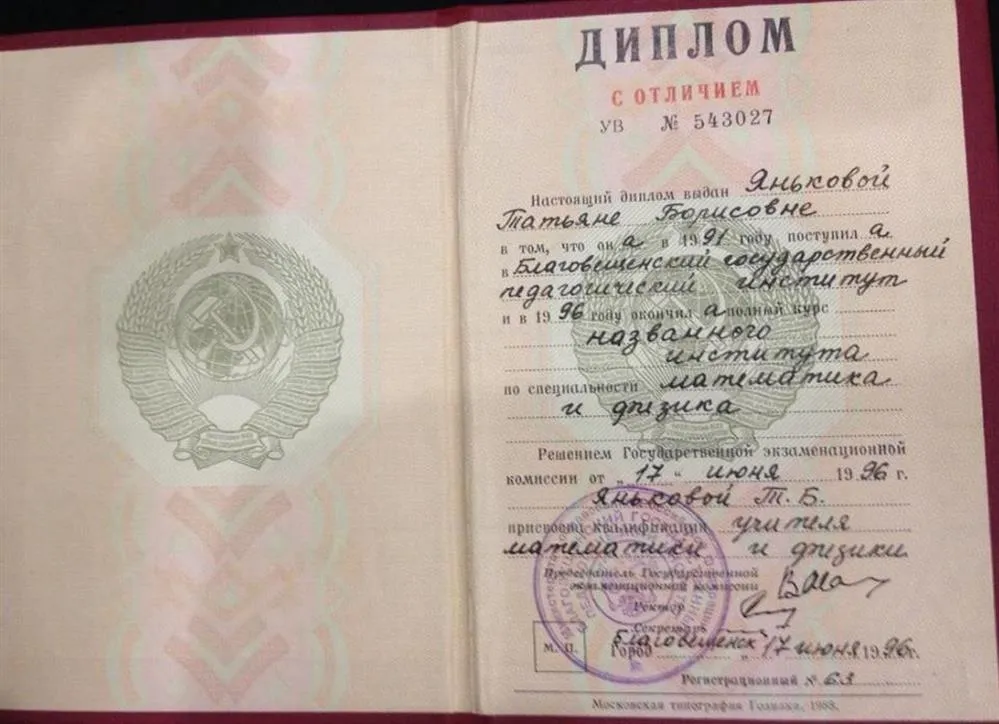 ДИПЛОМ
С ОТЛИЧИЕМ
УВ № 543027
Настоящий диплом выдан Яньковой
Татьяне Борисовне
в том, что он а в 1991 году поступил а
в Благовещенский государственный
педагогический институт
и в 1996 году окончил а полный курс
названного
института
по специальности математика
и физика
Решением Государственной экзаменационной
комиссии от „ 17 “ июня 1996 г.
Яньковой Т. Б.
присвоена квалификация учителя
математики и физики
Председатель Государственной
экзаменационной комиссии
Ректор
Секретарь
М. П. Город Благовещенск „ 17 июня 1996 г.
Регистрационный № 63
Московская типография Гознака, 1988.